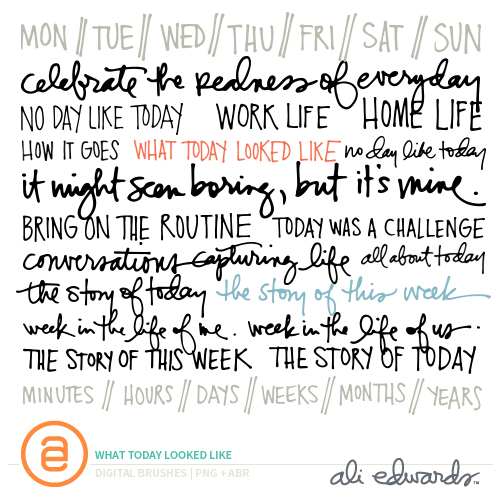 MON // TUE // WED // THU // FRI // SAT // SUN
celebrate the realness of everyday
NO DAY LIKE TODAY WORK LIFE HOME LIFE
HOW IT GOES WHAT TODAY LOOKED LIKE no day like today
it might seem boring, but it's mine.
BRING ON THE ROUTINE TODAY WAS A CHALLENGE
conversations capturing life all about today
the story of today the story of this week
week in the life of me. week in the life of us.
THE STORY OF THIS WEEK THE STORY OF TODAY
MINUTES // HOURS // DAYS // WEEKS // MONTHS // YEARS
ae
WHAT TODAY LOOKED LIKE
DIGITAL BRUSHES | PNG + ABR
ali edwards™